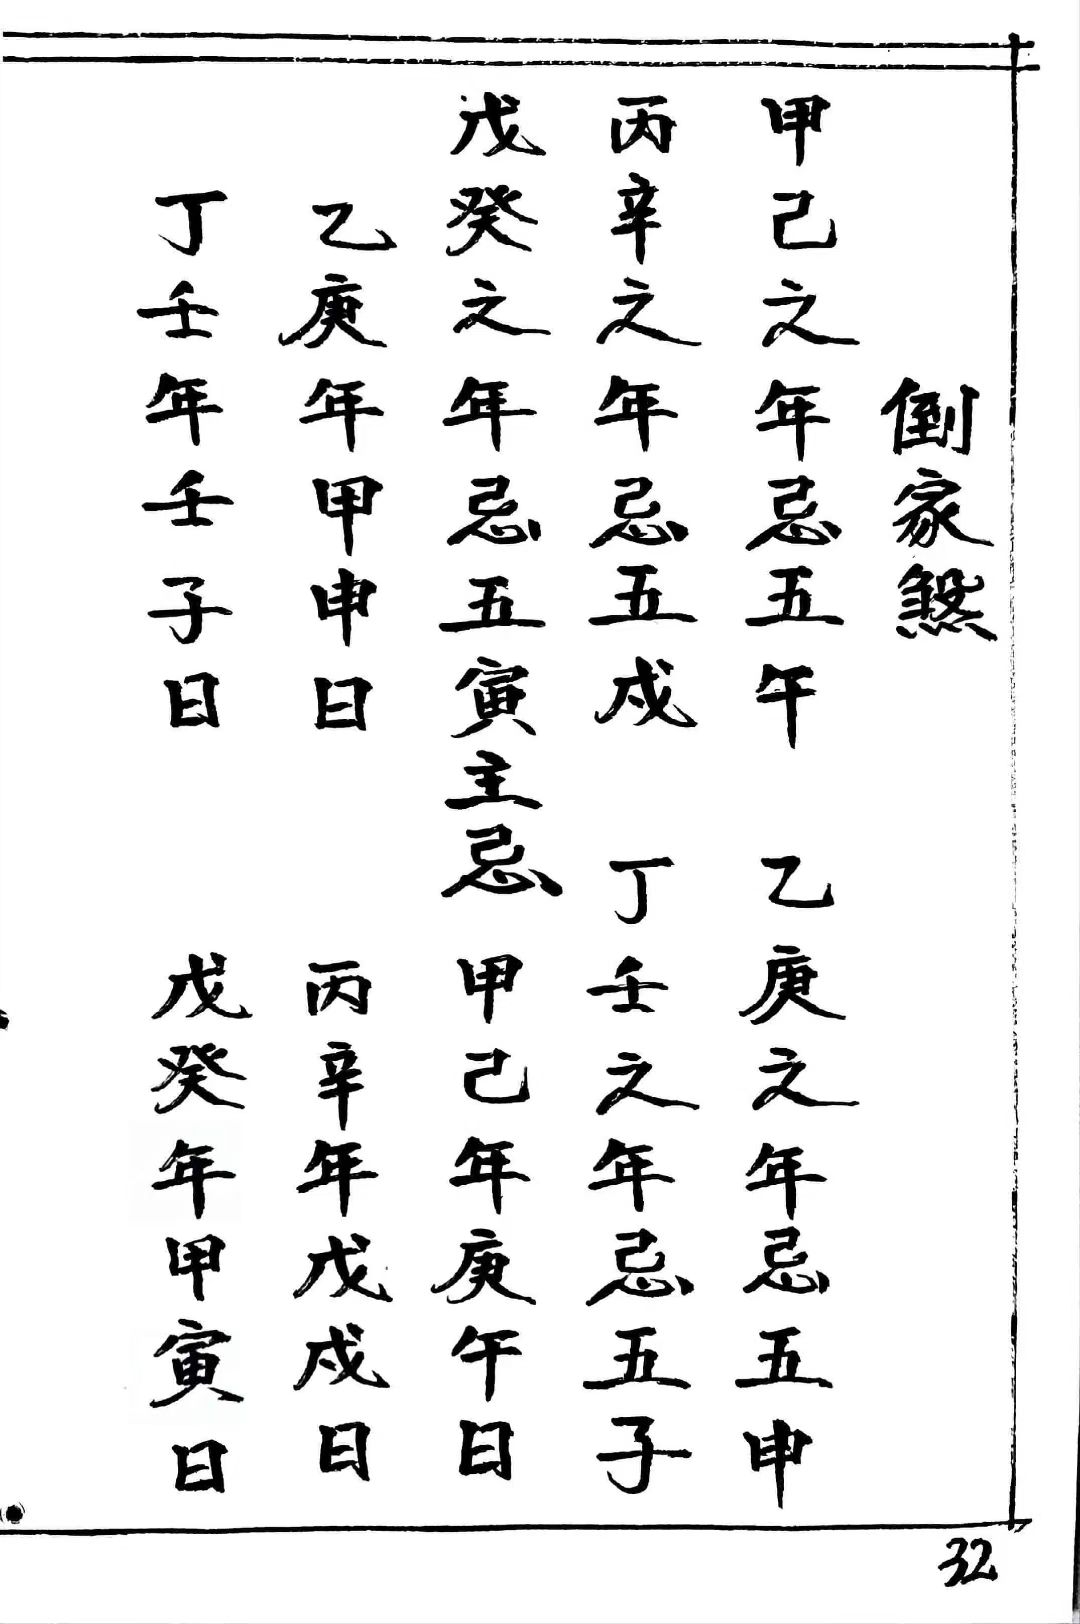 倒家煞
甲己之年忌五午 乙庚之年忌五申
丙辛之年忌五戌 丁壬之年忌五子
戊癸之年忌五寅主忌 甲己年庚午日
乙庚年甲申日 丙辛年戊戌日
丁壬年壬子日 戊癸年甲寅日
32